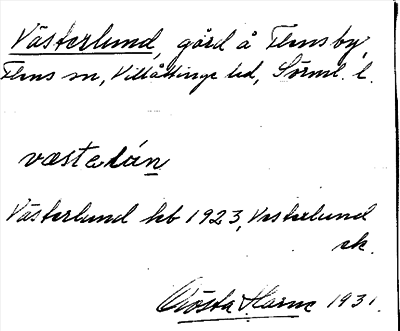 Västerlund, gård å Flensby,
Flens sn, Villåttinge hd, Sörml. l.
västelún
Västerlund hb 1923, Vesterlund
ek.
Gösta Harne 1931.